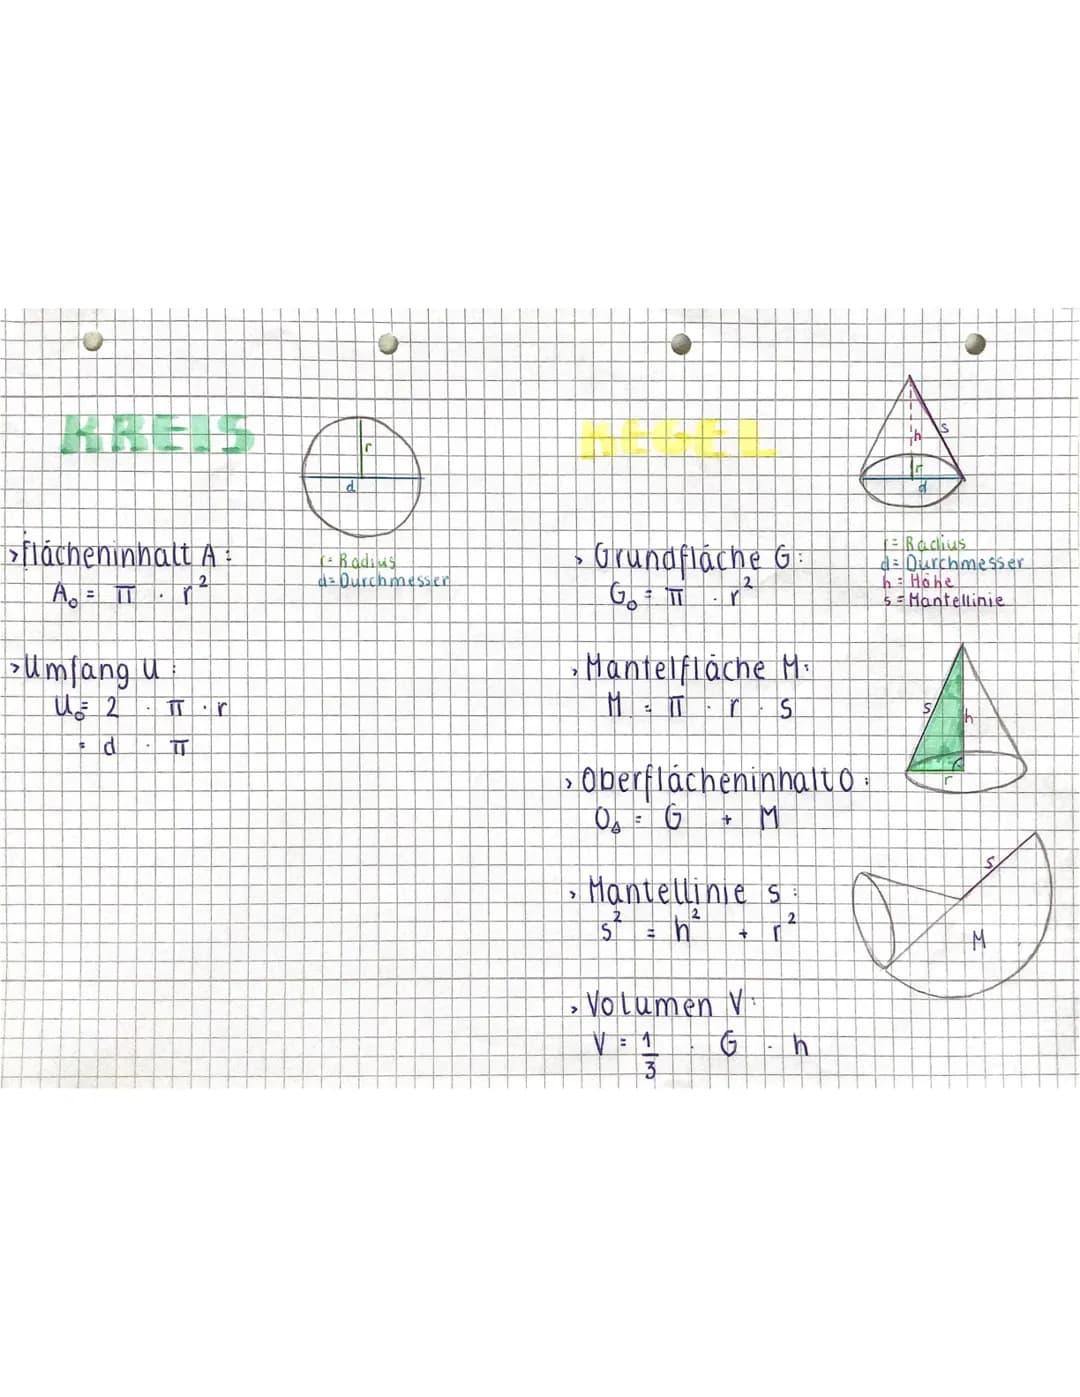 KREIS
r
d
›Flächeninhalt A:
A₀ = π · r²
r = Radius
d = Durchmesser
›Umfang U:
U₀ = 2 · π · r
= d · π
KEGEL
h
s
r
d
› Grundfläche G:
G₀ = π · r²
r = Radius
d = Durchmesser
h = Höhe
s = Mantellinie
› Mantelfläche M:
M = π · r · s
s
h
r
› Oberflächeninhalt O:
O△ = G + M
› Mantellinie s:
s² = h² + r²
s
M
› Volumen V:
V = 1/3 · G · h